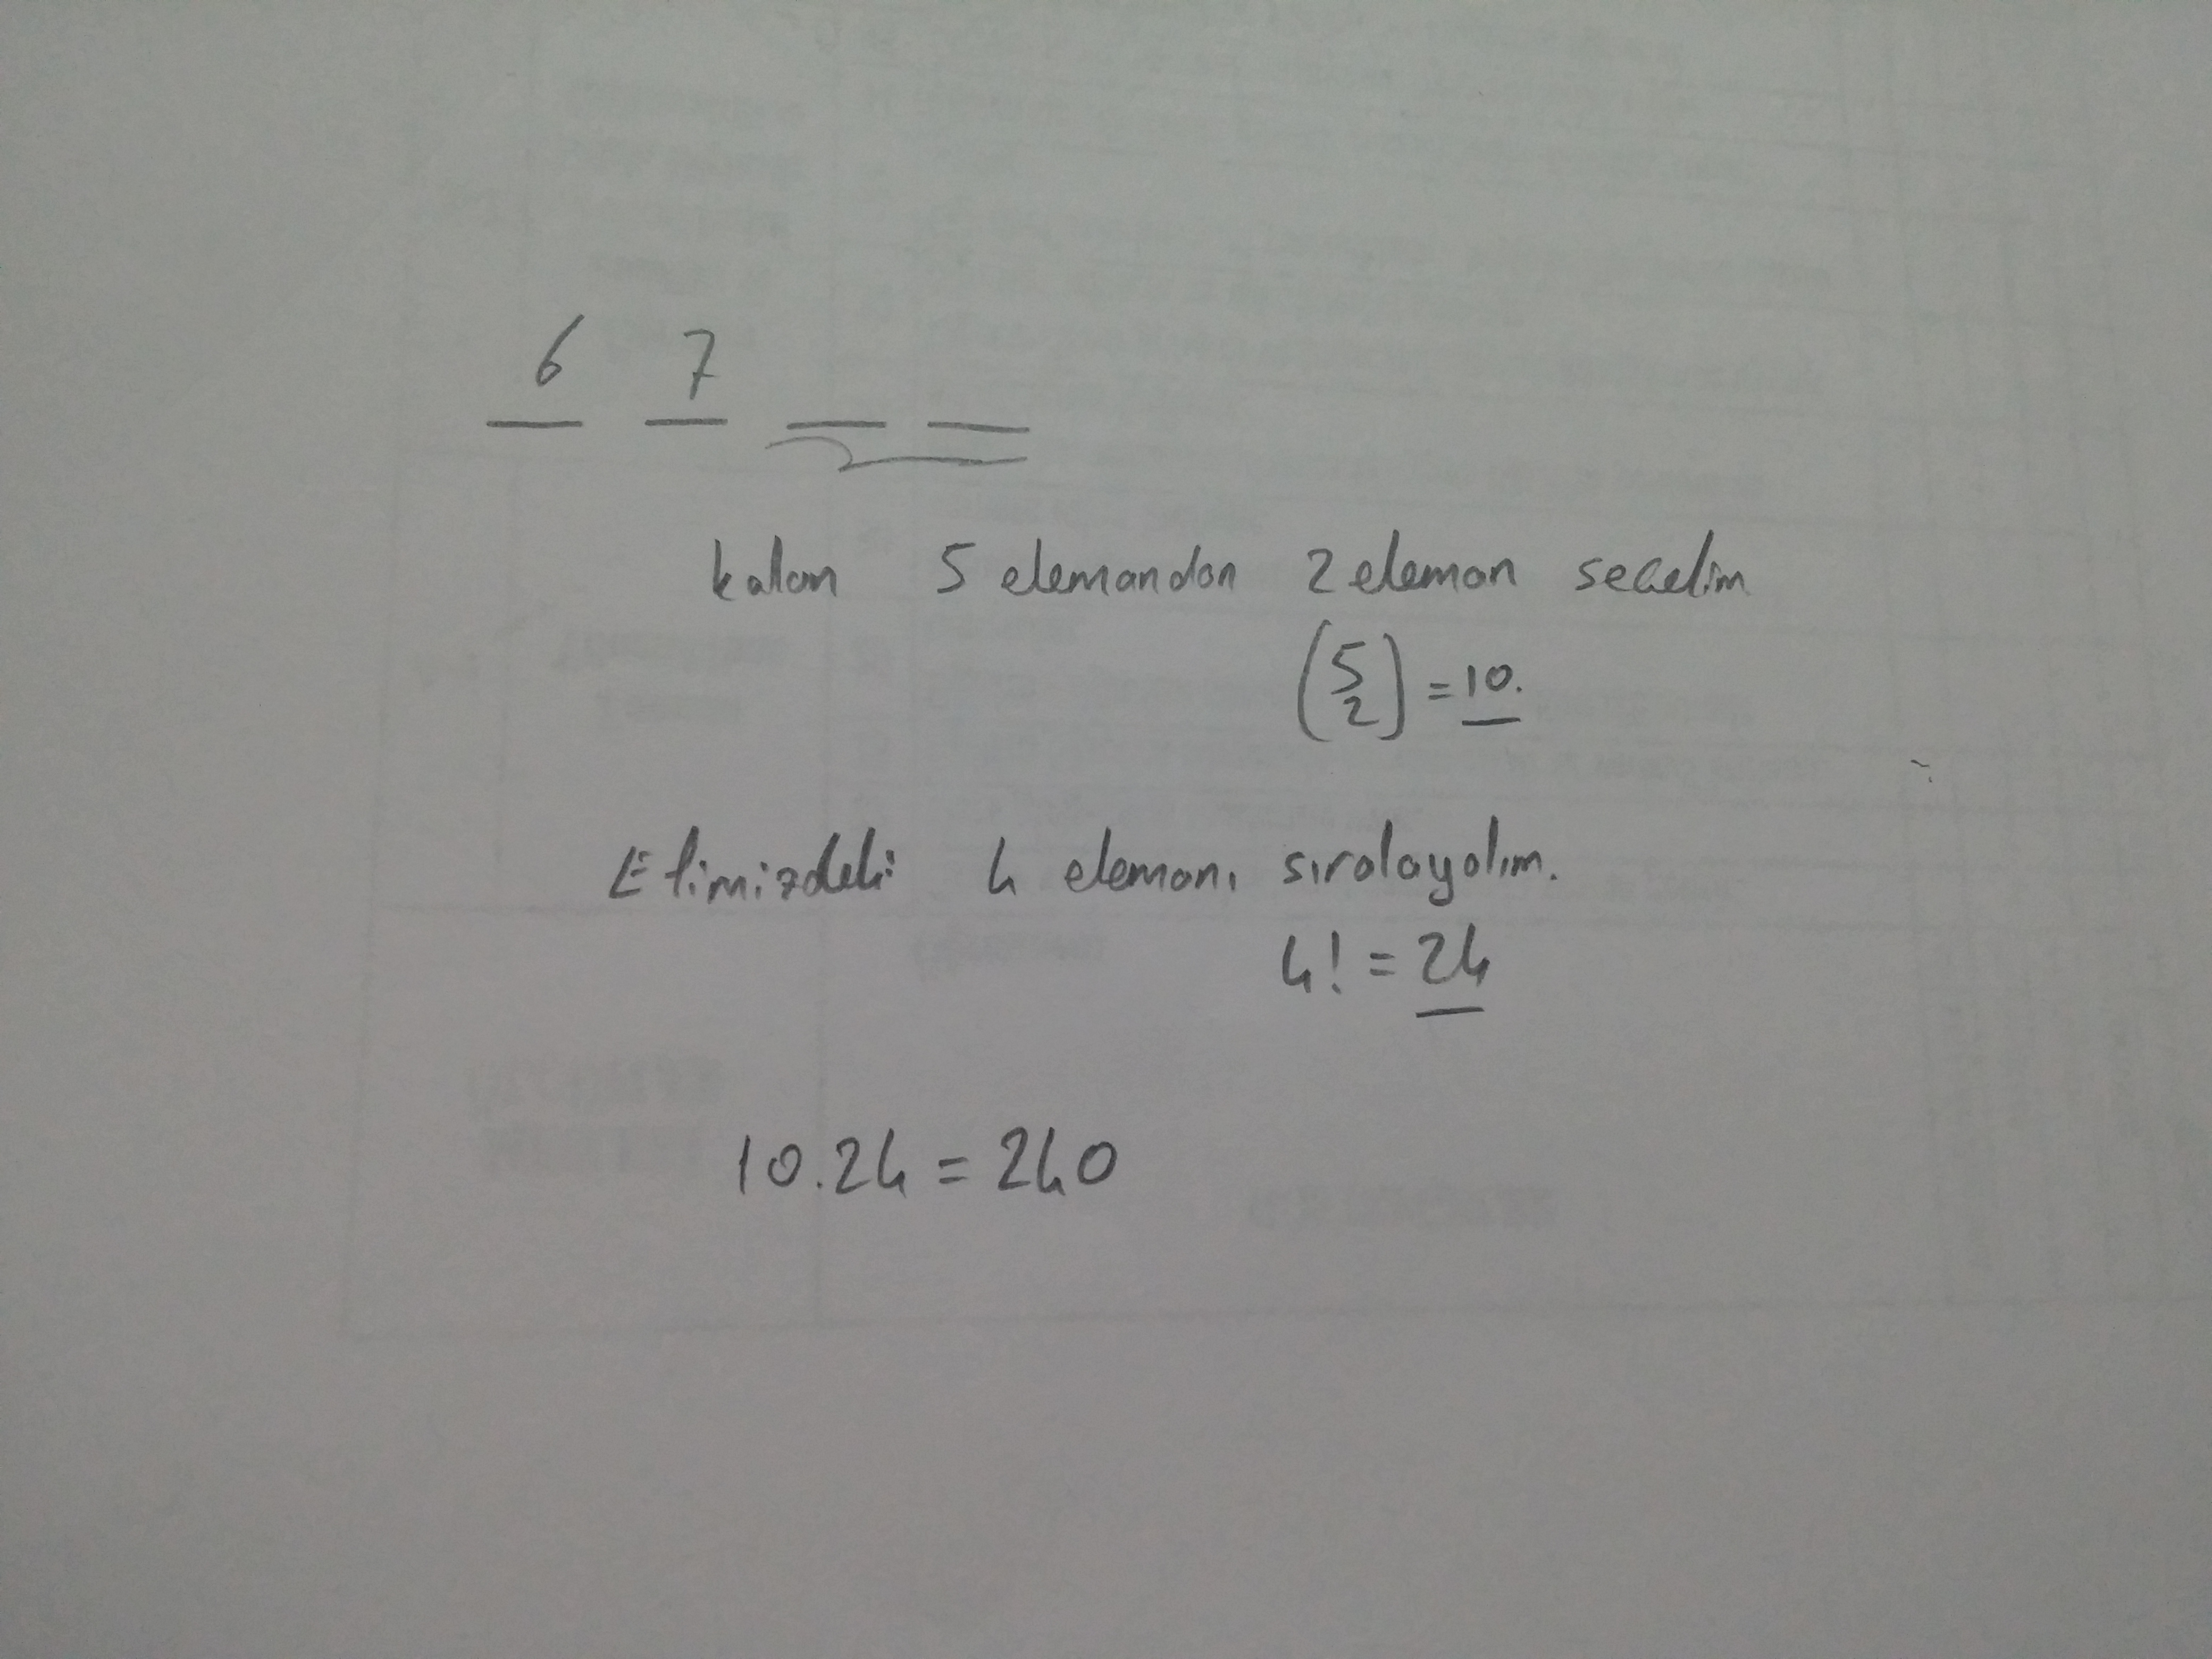 6 7
kalan 5 elemandan 2 eleman seçelim
(5 2) = 10.
Elimizdeki 4 elemanı sıralayalım.
4! = 24
10.24 = 240